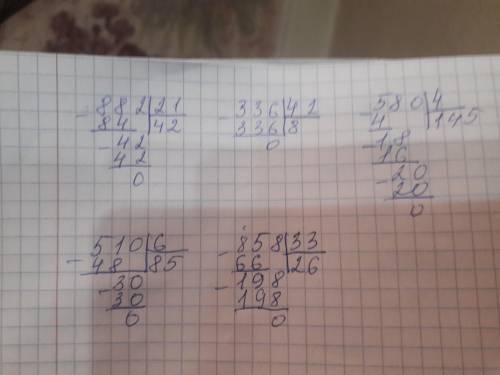 - 882 | 21
84 | 42
- 42
42
0
- 336 | 42
336 | 8
0
- 580 | 4
4 | 145
- 18
16
- 20
20
0
- 510 | 6
48 | 85
- 30
30
0
- 858 | 33
66 | 26
- 198
198
0